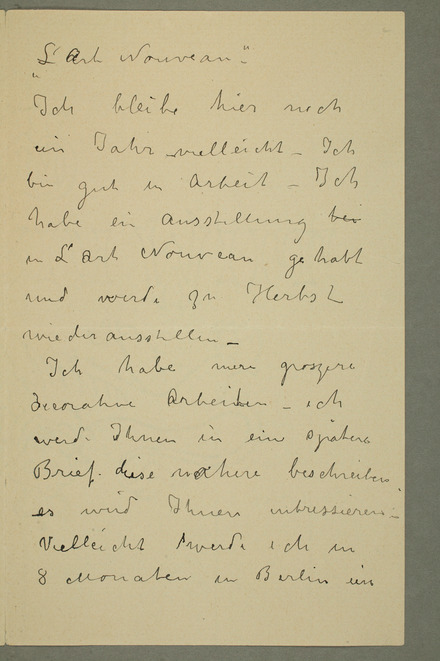 „L'Art Nouveau“.
Ich bleibe hier noch
ein Jahr vielleicht – Ich
bin gut in Arbeit – Ich
habe ein Ausstellung
in L'art Nouveau gehabt
und werde zu Herbst
wieder ausstellen –
Ich habe groszere
Decorative Arbeiten – ich
werde Ihnen in eine spätere
Brief diese beschreiben
es wird Ihnen intressieren –
Vielleicht werde ich in
8 Monaten in Berlin ein